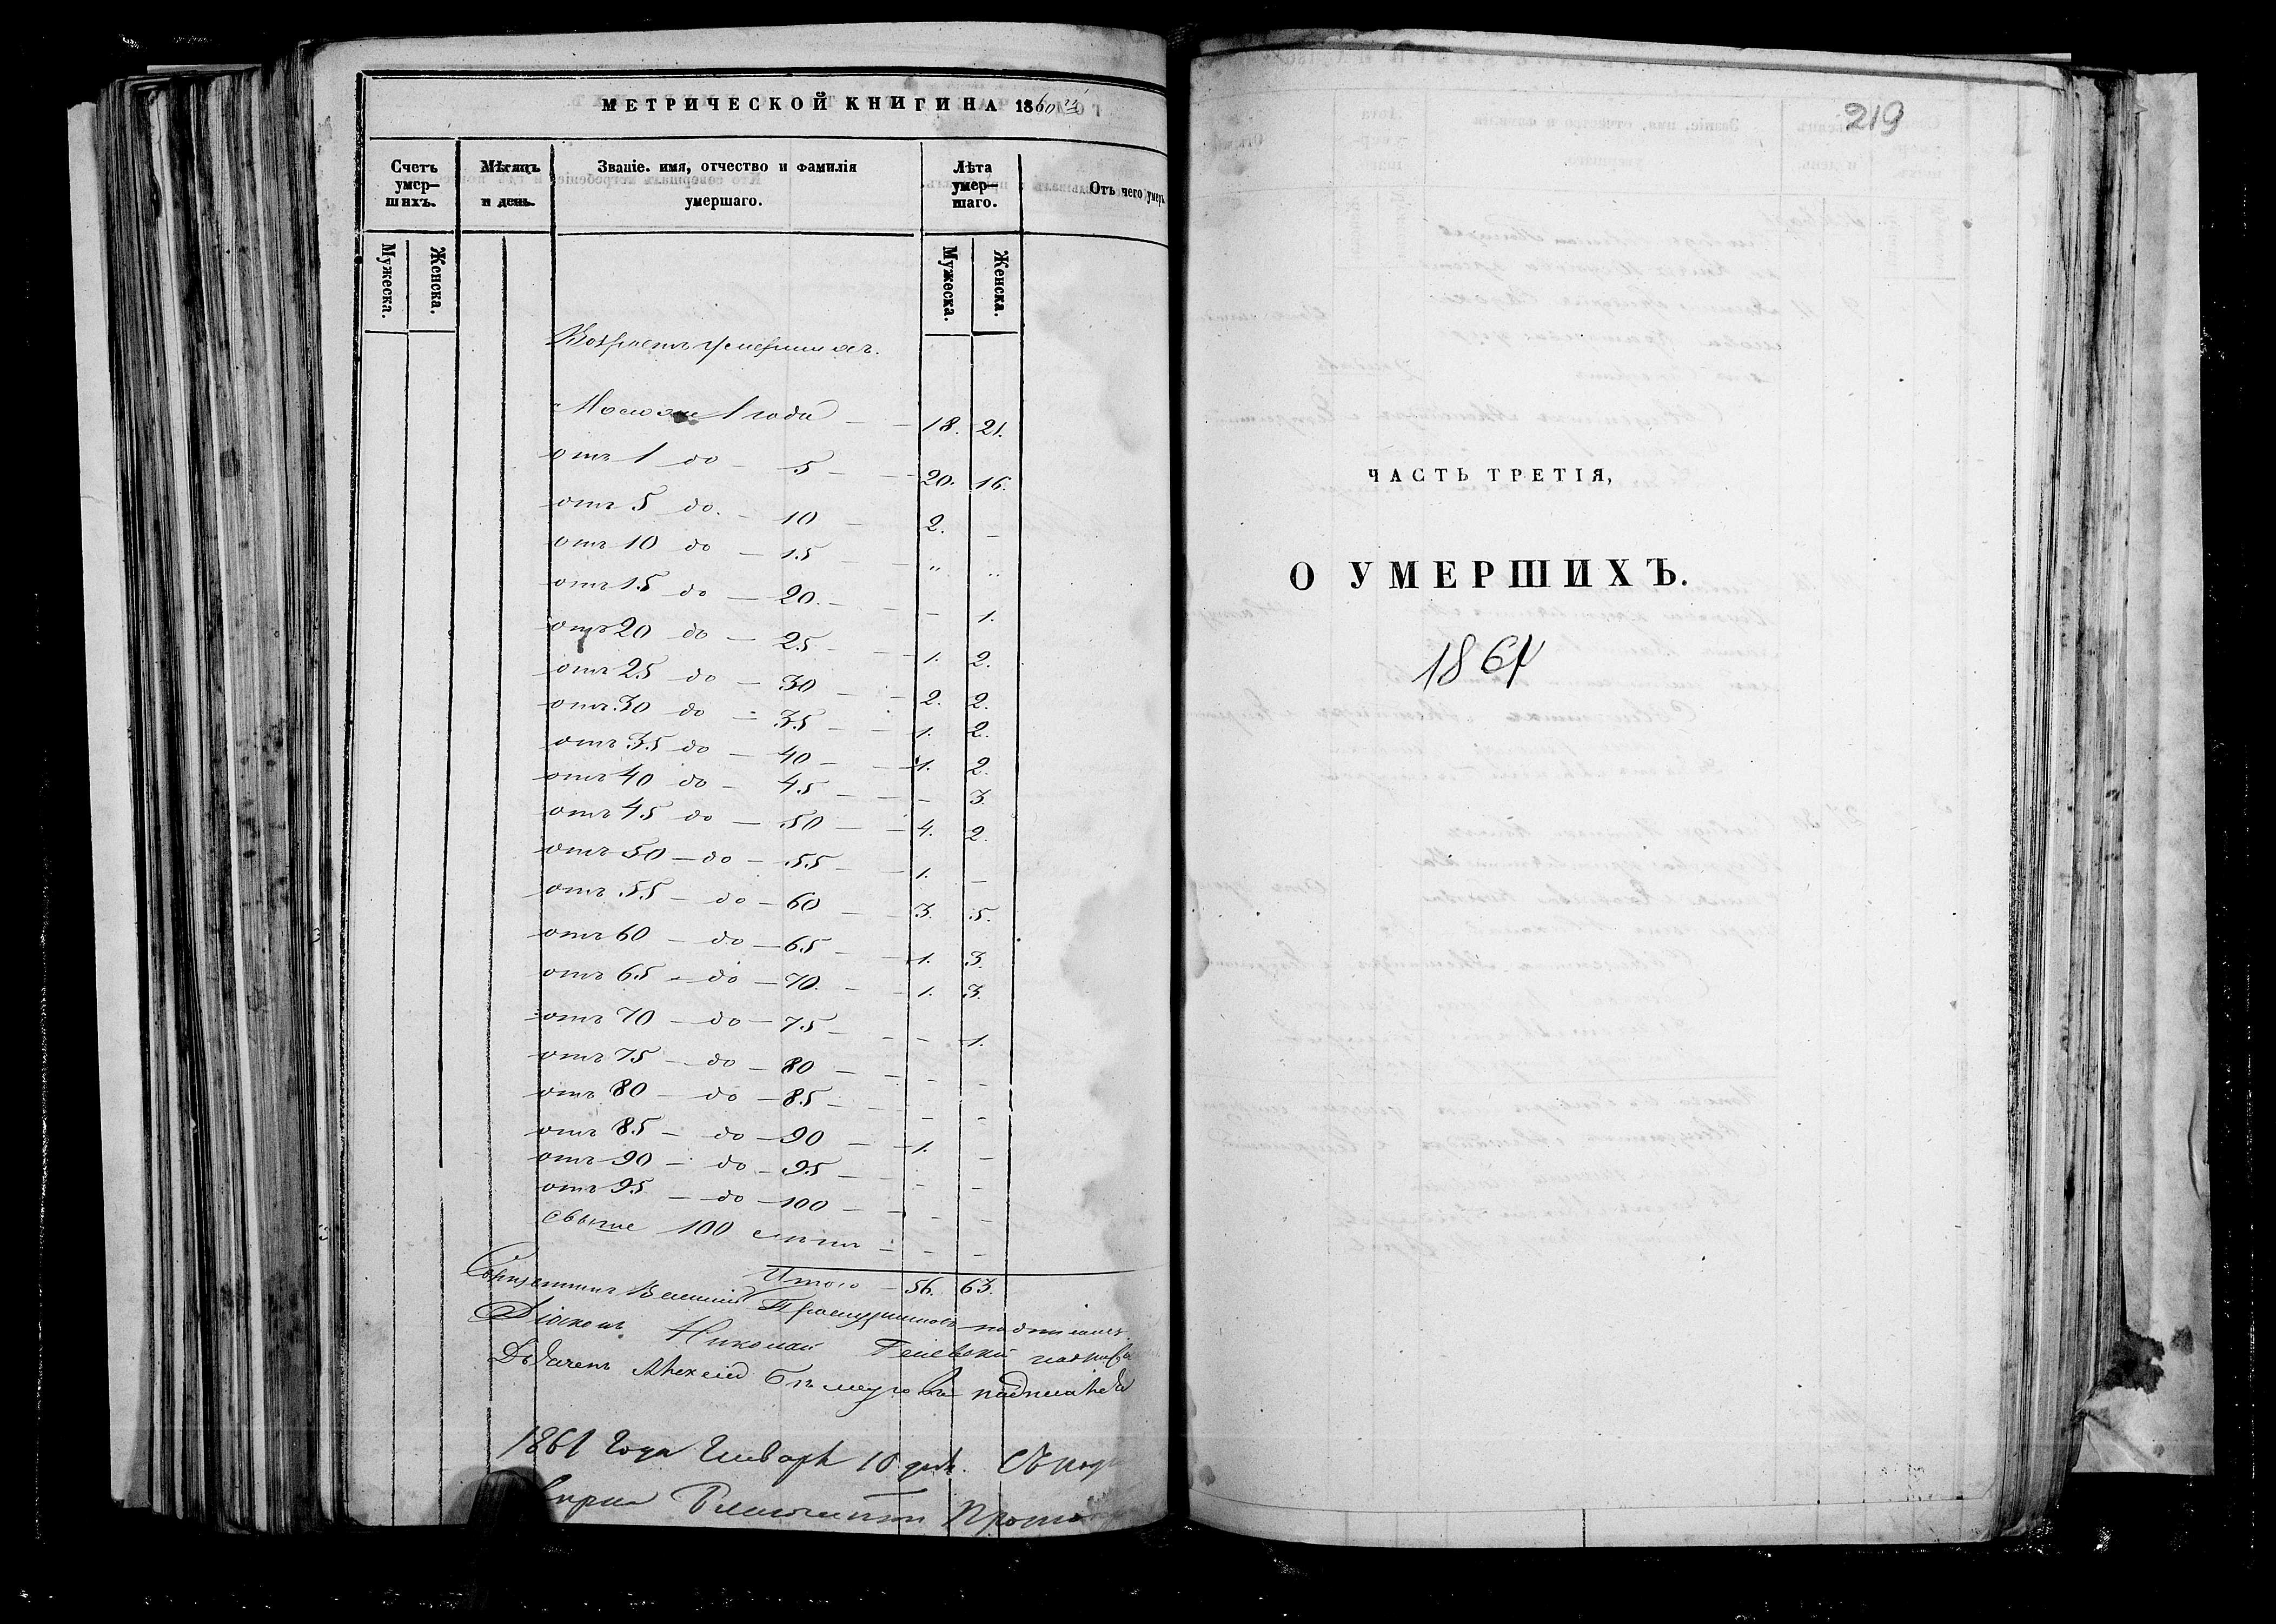 МЕТРИЧЕСКОЙ КНИГИ НА 1860й
Счетъ умер-шихъ.
Мѣсяцъ и день.
Званіе. имя, отчество и фамилія умершаго.
Лѣта умер-шаго.
Отъ чего умеръ
Мужеска.
Женска.
Мужеска.
Женска.
Возрастъ умершихъ.
1 года — — 18. 21.
отъ 1 до — 5 — — 20. 16.
отъ 5 до. — 10 — 2. —
отъ 10 до — 15 — — " "
отъ 15 до — 20. — — — 1.
отъ 20 до — 25 — — 1. 2.
отъ 25 до — 30 — — 2. 2.
отъ 30 до — 35 — — 1. 2.
отъ 35 до — 40 — — 1. 2.
отъ 40 до — 45 — — — 3.
отъ 45 до — 50 — — 4. 2.
отъ 50 — до — 55 — — 1. —
отъ 55 — до — 60 — — 3. 5.
отъ 60 — до — 65 — — 1. 3.
отъ 65 — до — 70. — — 1. 3.
отъ 70 — до — 75 — — — 1.
отъ 75 — до — 80 — — — —
отъ 80 — до — 85 — — — —
отъ 85 — до — 90 — — 1. —
отъ 90 — до — 95 — — — —
отъ 95 — до — 100 — — — —
свыше 100 — — —
Итого — 56. 63.
Священникъ Василій
Діаконъ Николай
Дьячекъ Алексей
1861 года Генваря 10 дня.
219
ЧАСТЬ ТРЕТІЯ,
О УМЕРШИХЪ.
1861